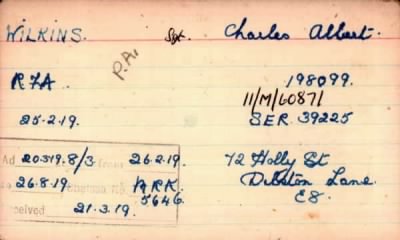 WILKINS. Sgt. Charles Albert.
P.A.
RFA 198099.
11/M/60871
25.2.19. SER. 39225
Ad 20319.8/3 26.2.19. 72 Holly St
26.8.19 ARK Dalston Lane
5646 E8.
ceived 21.3.19.